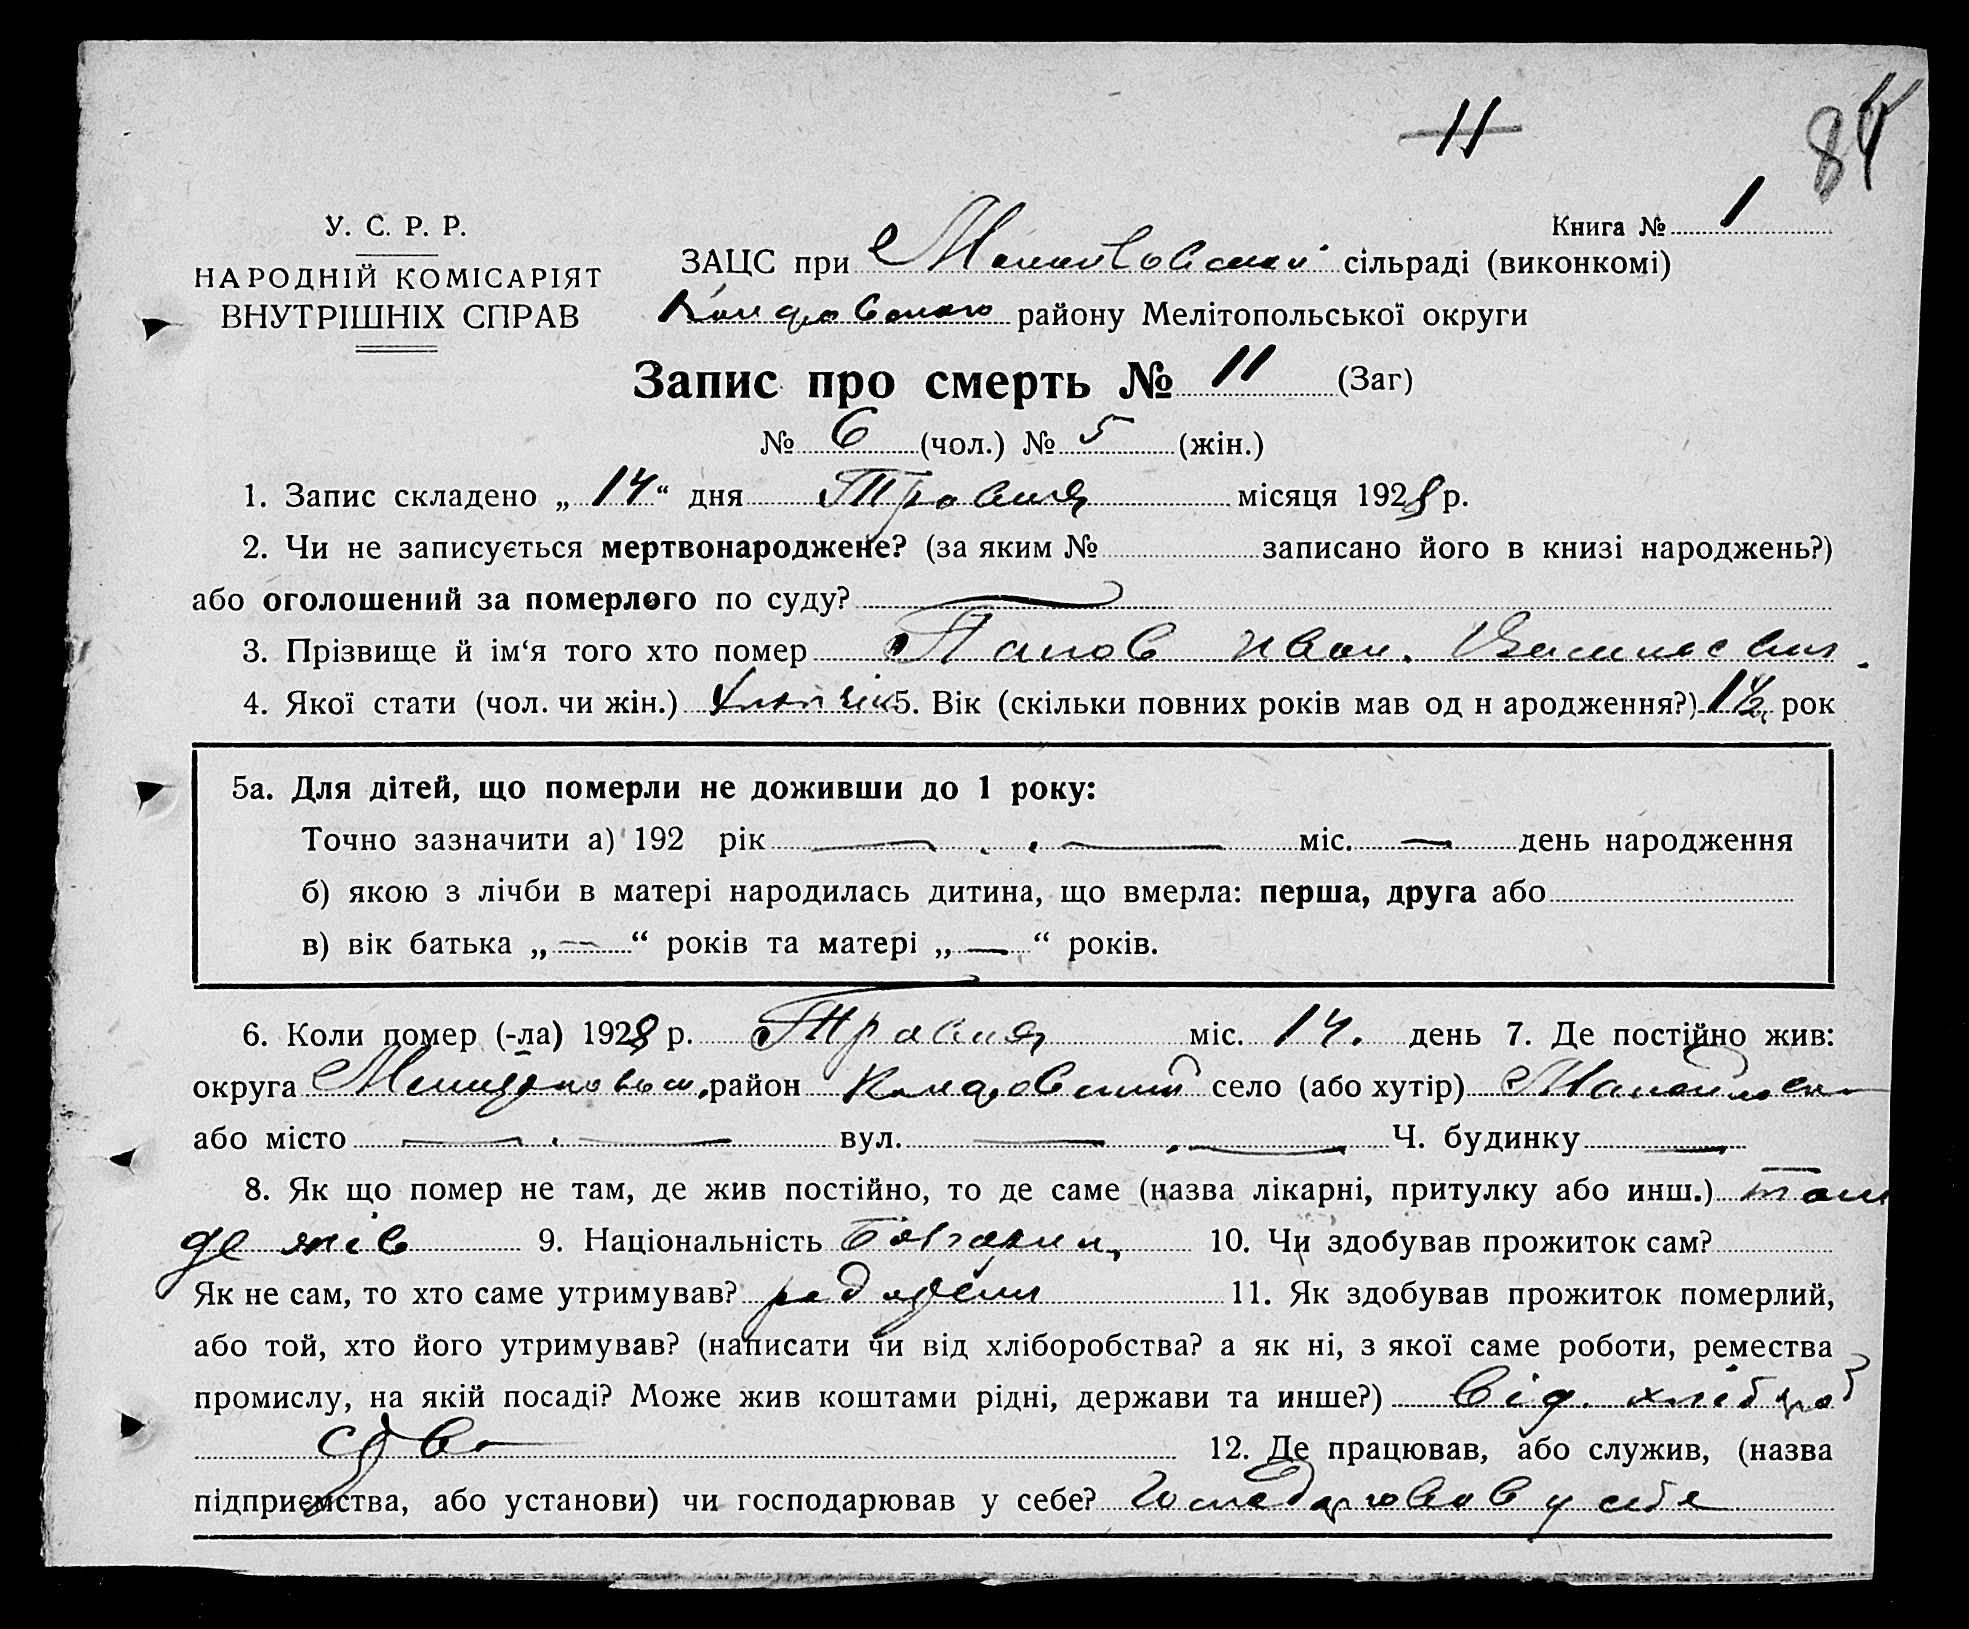 11
84
У. С. Р. Р.
НАРОДНІЙ КОМІСАРІЯТ
ВНУТРІШНІХ СПРАВ
Книга № 1
ЗАЦС при сільраді (виконкомі)
району Мелітопольської округи
Запис про смерть № 11 (Заг)
№ 6 (чол.) № 5 (жін.)
1. Запис складено „ 14 “ дня Травня місяця 1928 р.
2. Чи не записується мертвонароджене? (за яким № записано його в книзі народжень?)
або оголошений за померлого по суду?
3. Прізвище й ім‘я того хто помер Попов Иван
4. Якої стати (чол. чи жін.) 5. Вік (скільки повних років мав од н ародження?) 1½ рок
5а. Для дітей, що померли не доживши до 1 року:
Точно зазначити а) 192 рік міс. день народження
б) якою з лічби в матері народилась дитина, що вмерла: перша, друга або
в) вік батька „ — “ років та матері „ — “ років.
6. Коли помер (-ла) 1928 р. Травня міс. 14. день 7. Де постійно жив:
округа район село (або хутір)
або місто вул. Ч. будинку
8. Як що помер не там, де жив постійно, то де саме (назва лікарні, притулку або инш.) там
де жів 9. Національність 10. Чи здобував прожиток сам?
Як не сам, то хто саме утримував? 11. Як здобував прожиток померлий,
або той, хто його утримував? (написати чи від хліборобства? а як ні, з якої саме роботи, ремества
промислу, на якій посаді? Може жив коштами рідні, держави та инше?) від. хлібороб
ства 12. Де працював, або служив, (назва
підприємства, або установи) чи господарював у себе? Господарював у себе